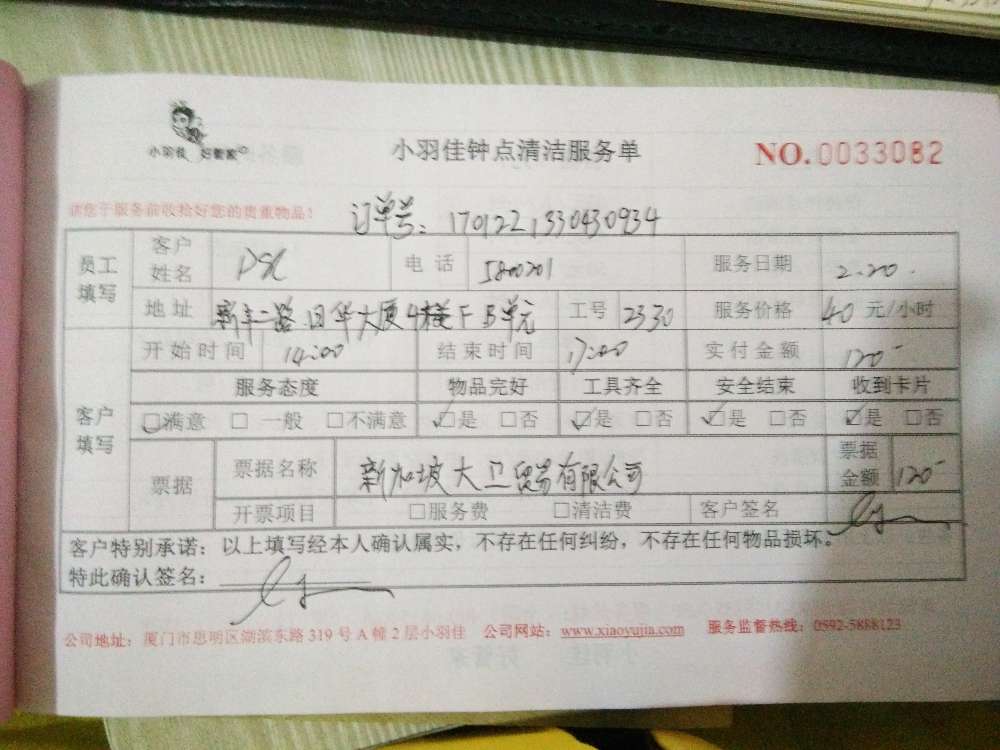 小羽佳 好管家
小羽佳钟点清洁服务单
NO.0033082
请您于服务前收拾好您的贵重物品!
订单号:1701221330430934
员工填写 客户姓名 DSC 电话 5800201 服务日期 2.20.
地址 新丰二路日华大厦4楼F B单元 工号 2330 服务价格 40 元/小时
开始时间 14:00 结束时间 17:00 实付金额 120-
客户填写 服务态度 物品完好 工具齐全 安全结束 收到卡片
☑满意 □ 一般 □不满意 ☑是 □否 ☑是 □否 ☑是 □否 ☑是 □否
票据 票据名称 新加坡大卫贸易有限公司 票据金额 120-
开票项目 □服务费 □清洁费 客户签名
客户特别承诺:以上填写经本人确认属实,不存在任何纠纷,不存在任何物品损坏。
特此确认签名:
公司地址:厦门市思明区湖滨东路 319 号 A 幢 2 层小羽佳 公司网站:www.xiaoyujia.com 服务监督热线:0592-5888123